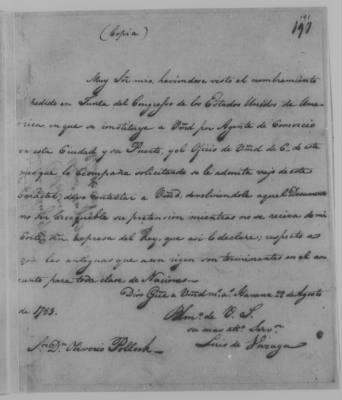 191
197
(Copia)
Muy Sor. mio: haviendose visto el nombramiento
expedido en Junta del Congreso de los Estados Unidos de Ame-
rica en que se constituye a Vmd. por Agente de Comercio
en esta Ciudad y su Puerto, y el Oficio de Vmd. de 6. de este
mes que le acompaña solicitando se le admita vajo de este
Caracter; devo contestar a Vmd. devolviendole aquel Documento
no ser asequible su pretension mientras no se reciva de mi
Corte, orn. expresa del Rey, que asi lo declare; respecto a
que las antiguas que aun rigen son terminantes en el as-
unto para toda clase de Naciones.
Dios Gue. a Vmd. ms. as. Havana 22 de Agosto
de 1783.
Blmo. de V. S.
su mas atto. Servr.
Luis de Unzaga
Sor. Dn. Oliverio Pollock.